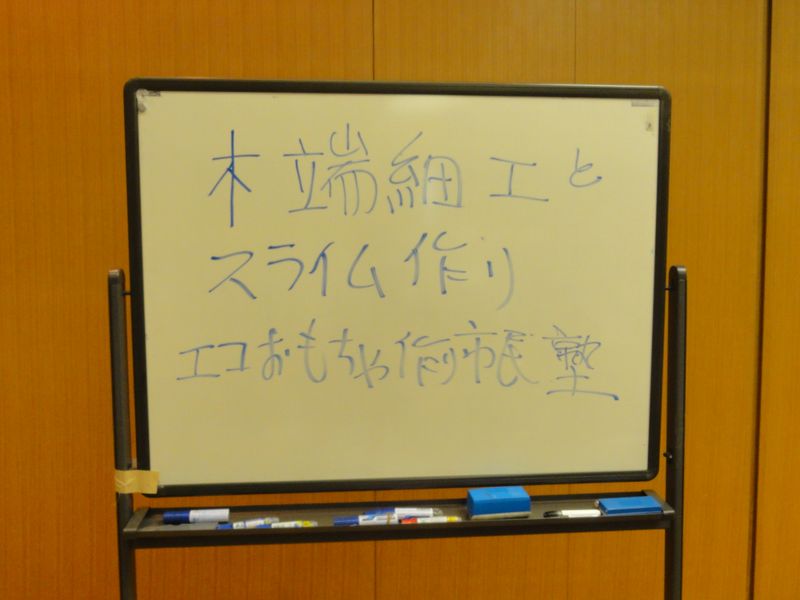 木端細工と
スライム作り
エコおもちゃ作り市民塾